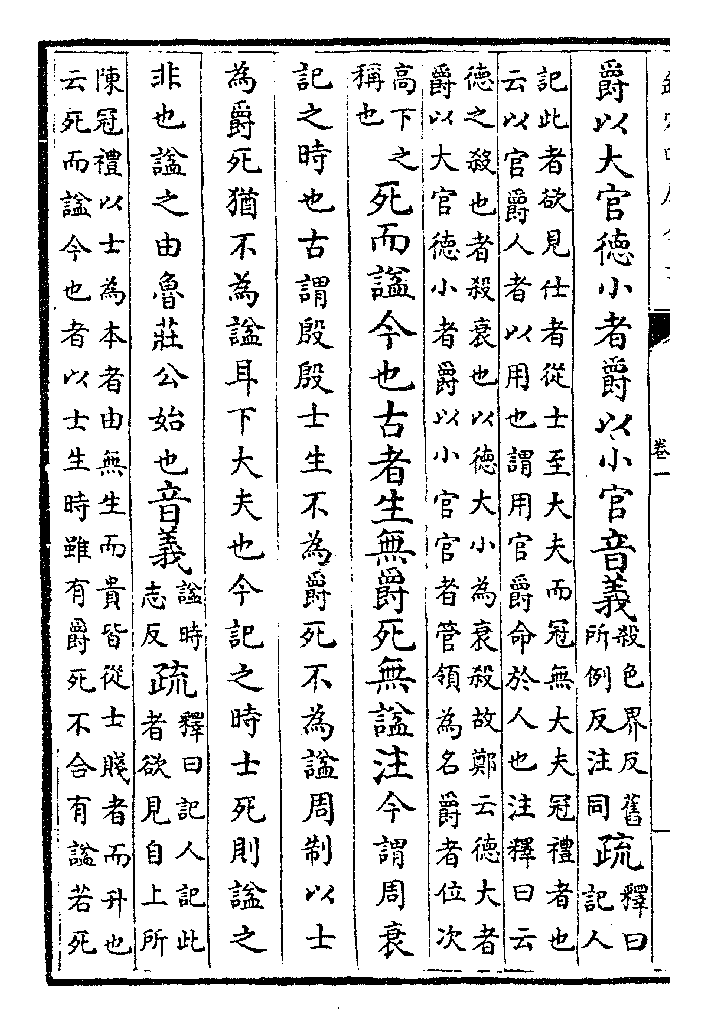 卷一
爵以大官徳小者爵以小官音義殺色界反舊
所例反注同疏釋曰
記人
記此者欲見仕者從士至大夫而冠無大夫冠禮者也
云以官爵人者以用也謂用官爵命於人也注釋曰云
德之殺也者殺衰也以德大小為衰殺故鄭云德大者
爵以大官德小者爵以小官官者管領為名爵者位次
高下之
稱也死而諡今也古者生無爵死無諡注今謂周衰
記之時也古謂殷殷士生不為爵死不為諡周制以士
為爵死猶不為諡耳下大夫也今記之時士死則諡之
非也諡之由魯莊公始也音義諡時
志反疏釋曰記人記此
者欲見自上所
陳冠禮以士為本者由無生而貴皆從士賤者而升也
云死而諡今也者以士生時雖有爵死不合有諡若死